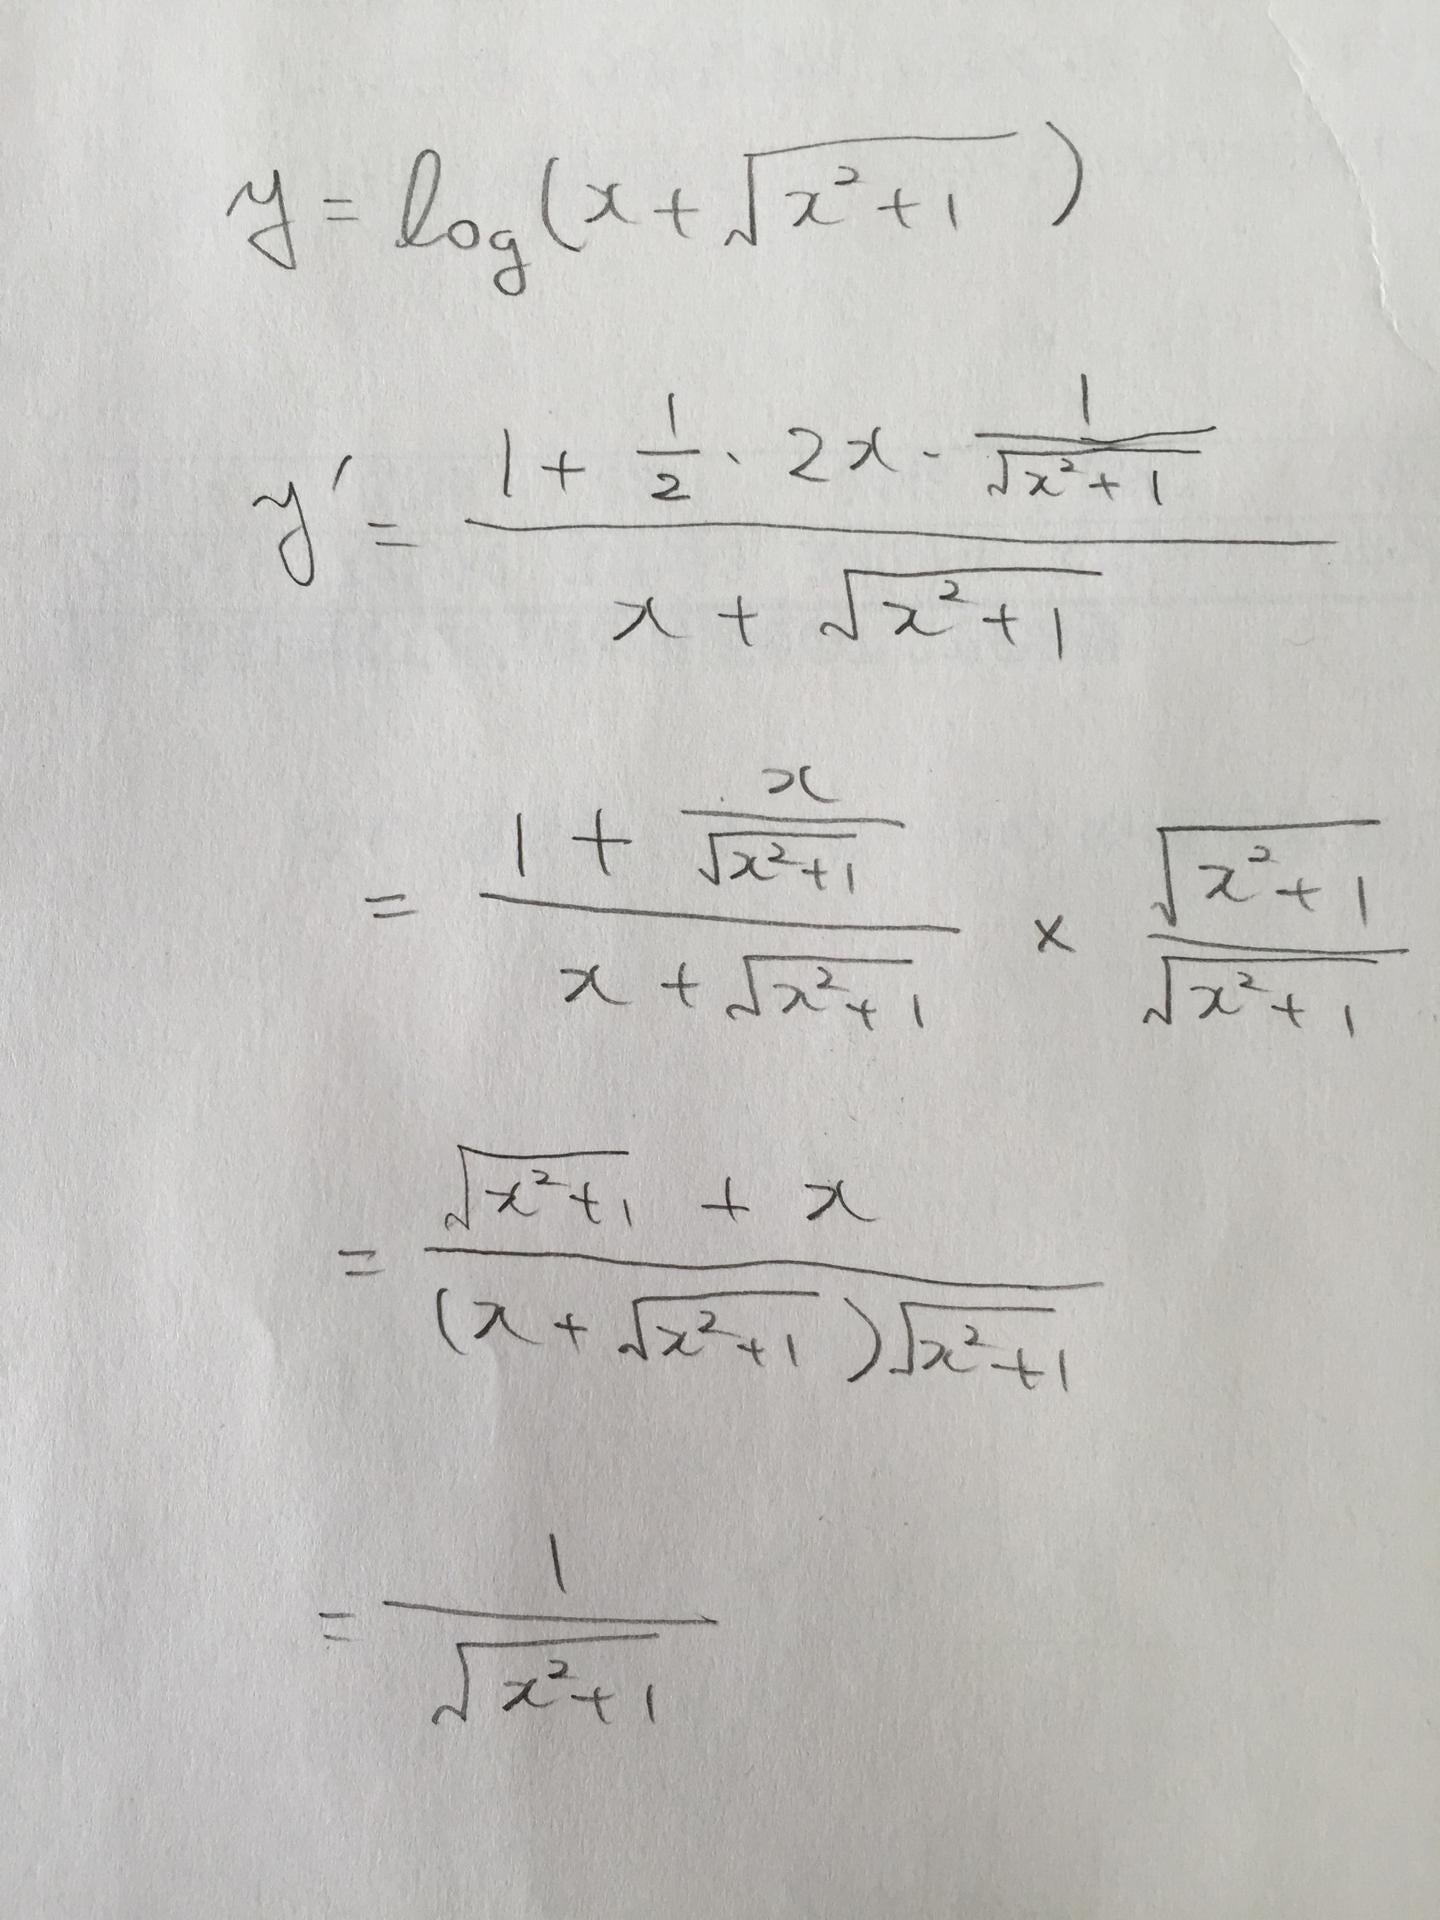 y = log(x + √(x²+1))
y' = (1 + 1/2 · 2x · 1/√(x²+1)) / (x + √(x²+1))
= (1 + x/√(x²+1)) / (x + √(x²+1)) × √(x²+1)/√(x²+1)
= (√(x²+1) + x) / ((x + √(x²+1))√(x²+1))
= 1/√(x²+1)